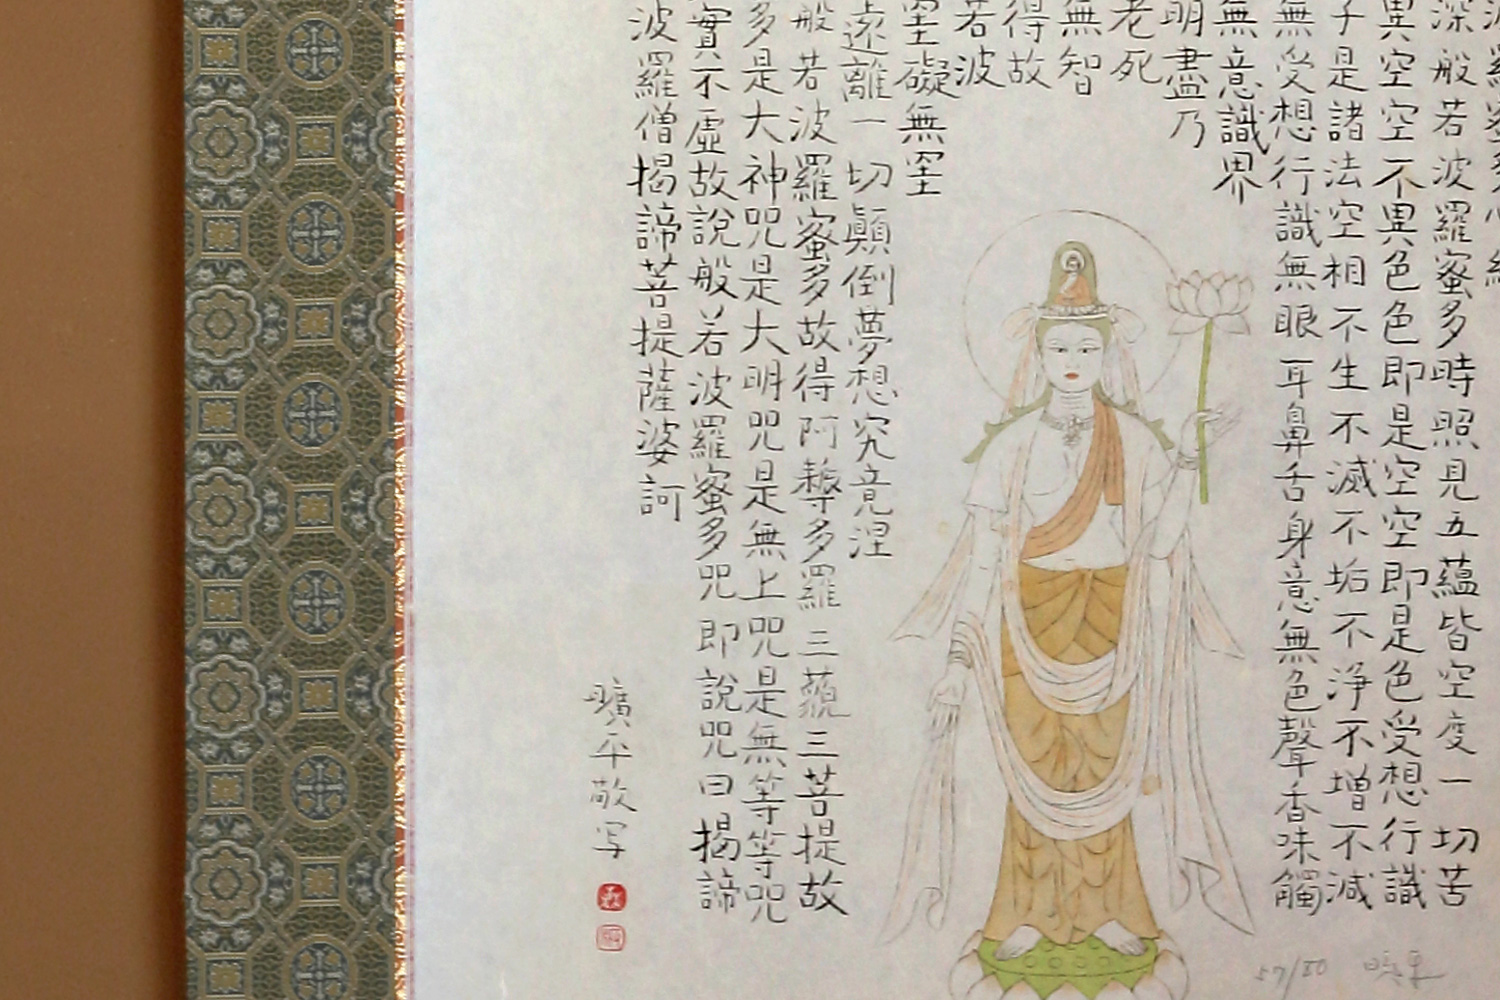 深般若波羅蜜多時照見五蘊皆空度一切苦
異空空不異色色即是空空即是色受想行識
子是諸法空相不生不滅不垢不浄不增不減
無受想行識無眼耳鼻舌身意無色聲香味觸
無意識界
明盡乃
老死
無智
得故
若波
罣礙無罣
遠離一切顛倒夢想究竟涅
般若波羅蜜多故得阿耨多羅三藐三菩提故
多是大神咒是大明咒是無上咒是無等等咒
實不虛故說般若波羅蜜多咒即說咒曰揭諦
波羅僧揭諦菩提薩婆訶
曠平敬写
57/80